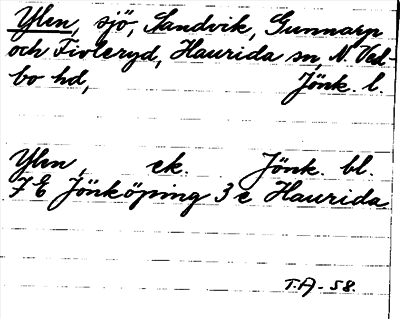 Ylen, sjö, Sandvik, Gunnarp
och Fivleryd, Haurida sn, N. Ved-
bo hd, Jönk. l.
Ylen, ek. Jönk. bl.
7 E Jönköping 3 e Haurida
T.A-58.